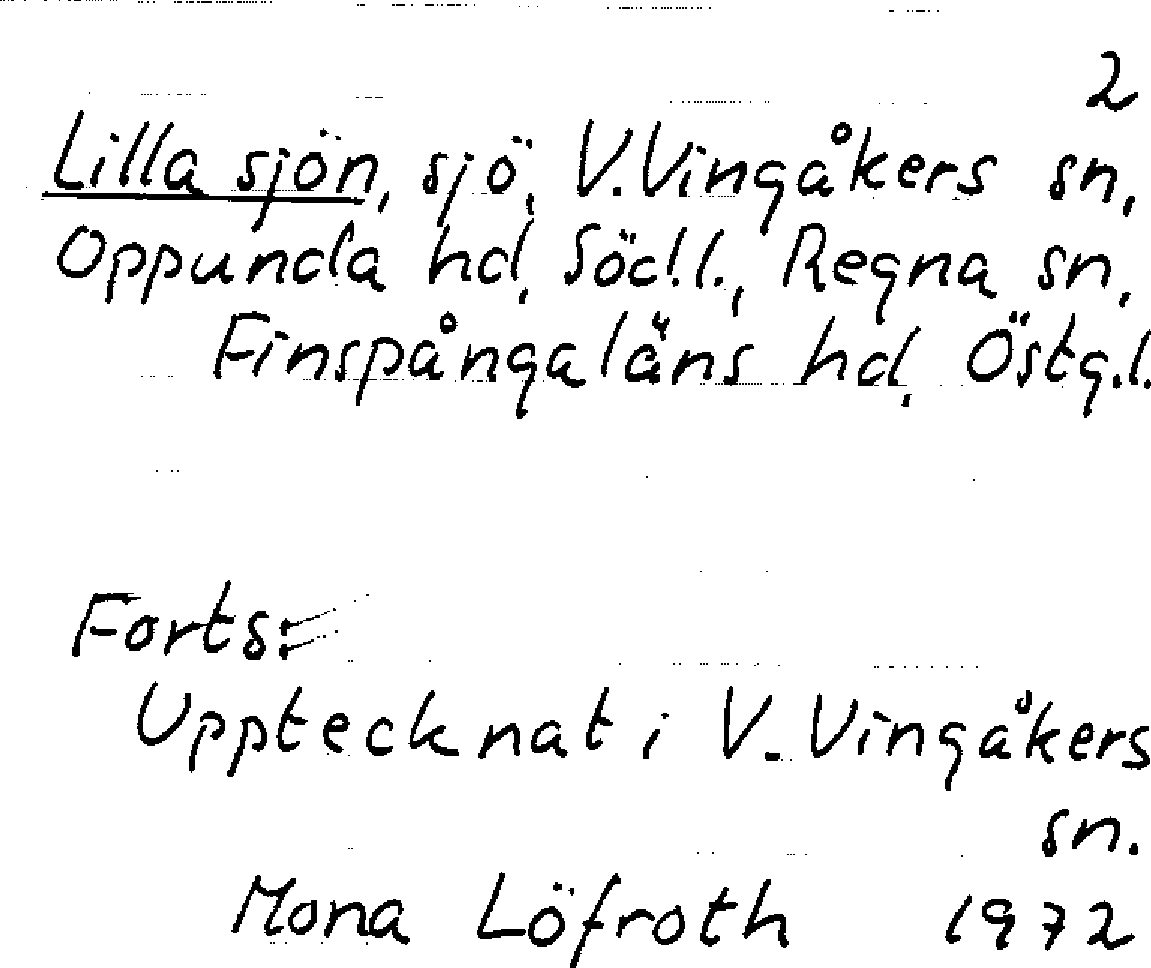 2
Lilla sjön, sjö, V.Vingåkers sn,
Oppunda hd, Söd.l., Regna sn,
Finspångaläns hd, Östg.l.
Forts:
Upptecknat i V. Vingåkers
sn.
Mona Löfroth 1972